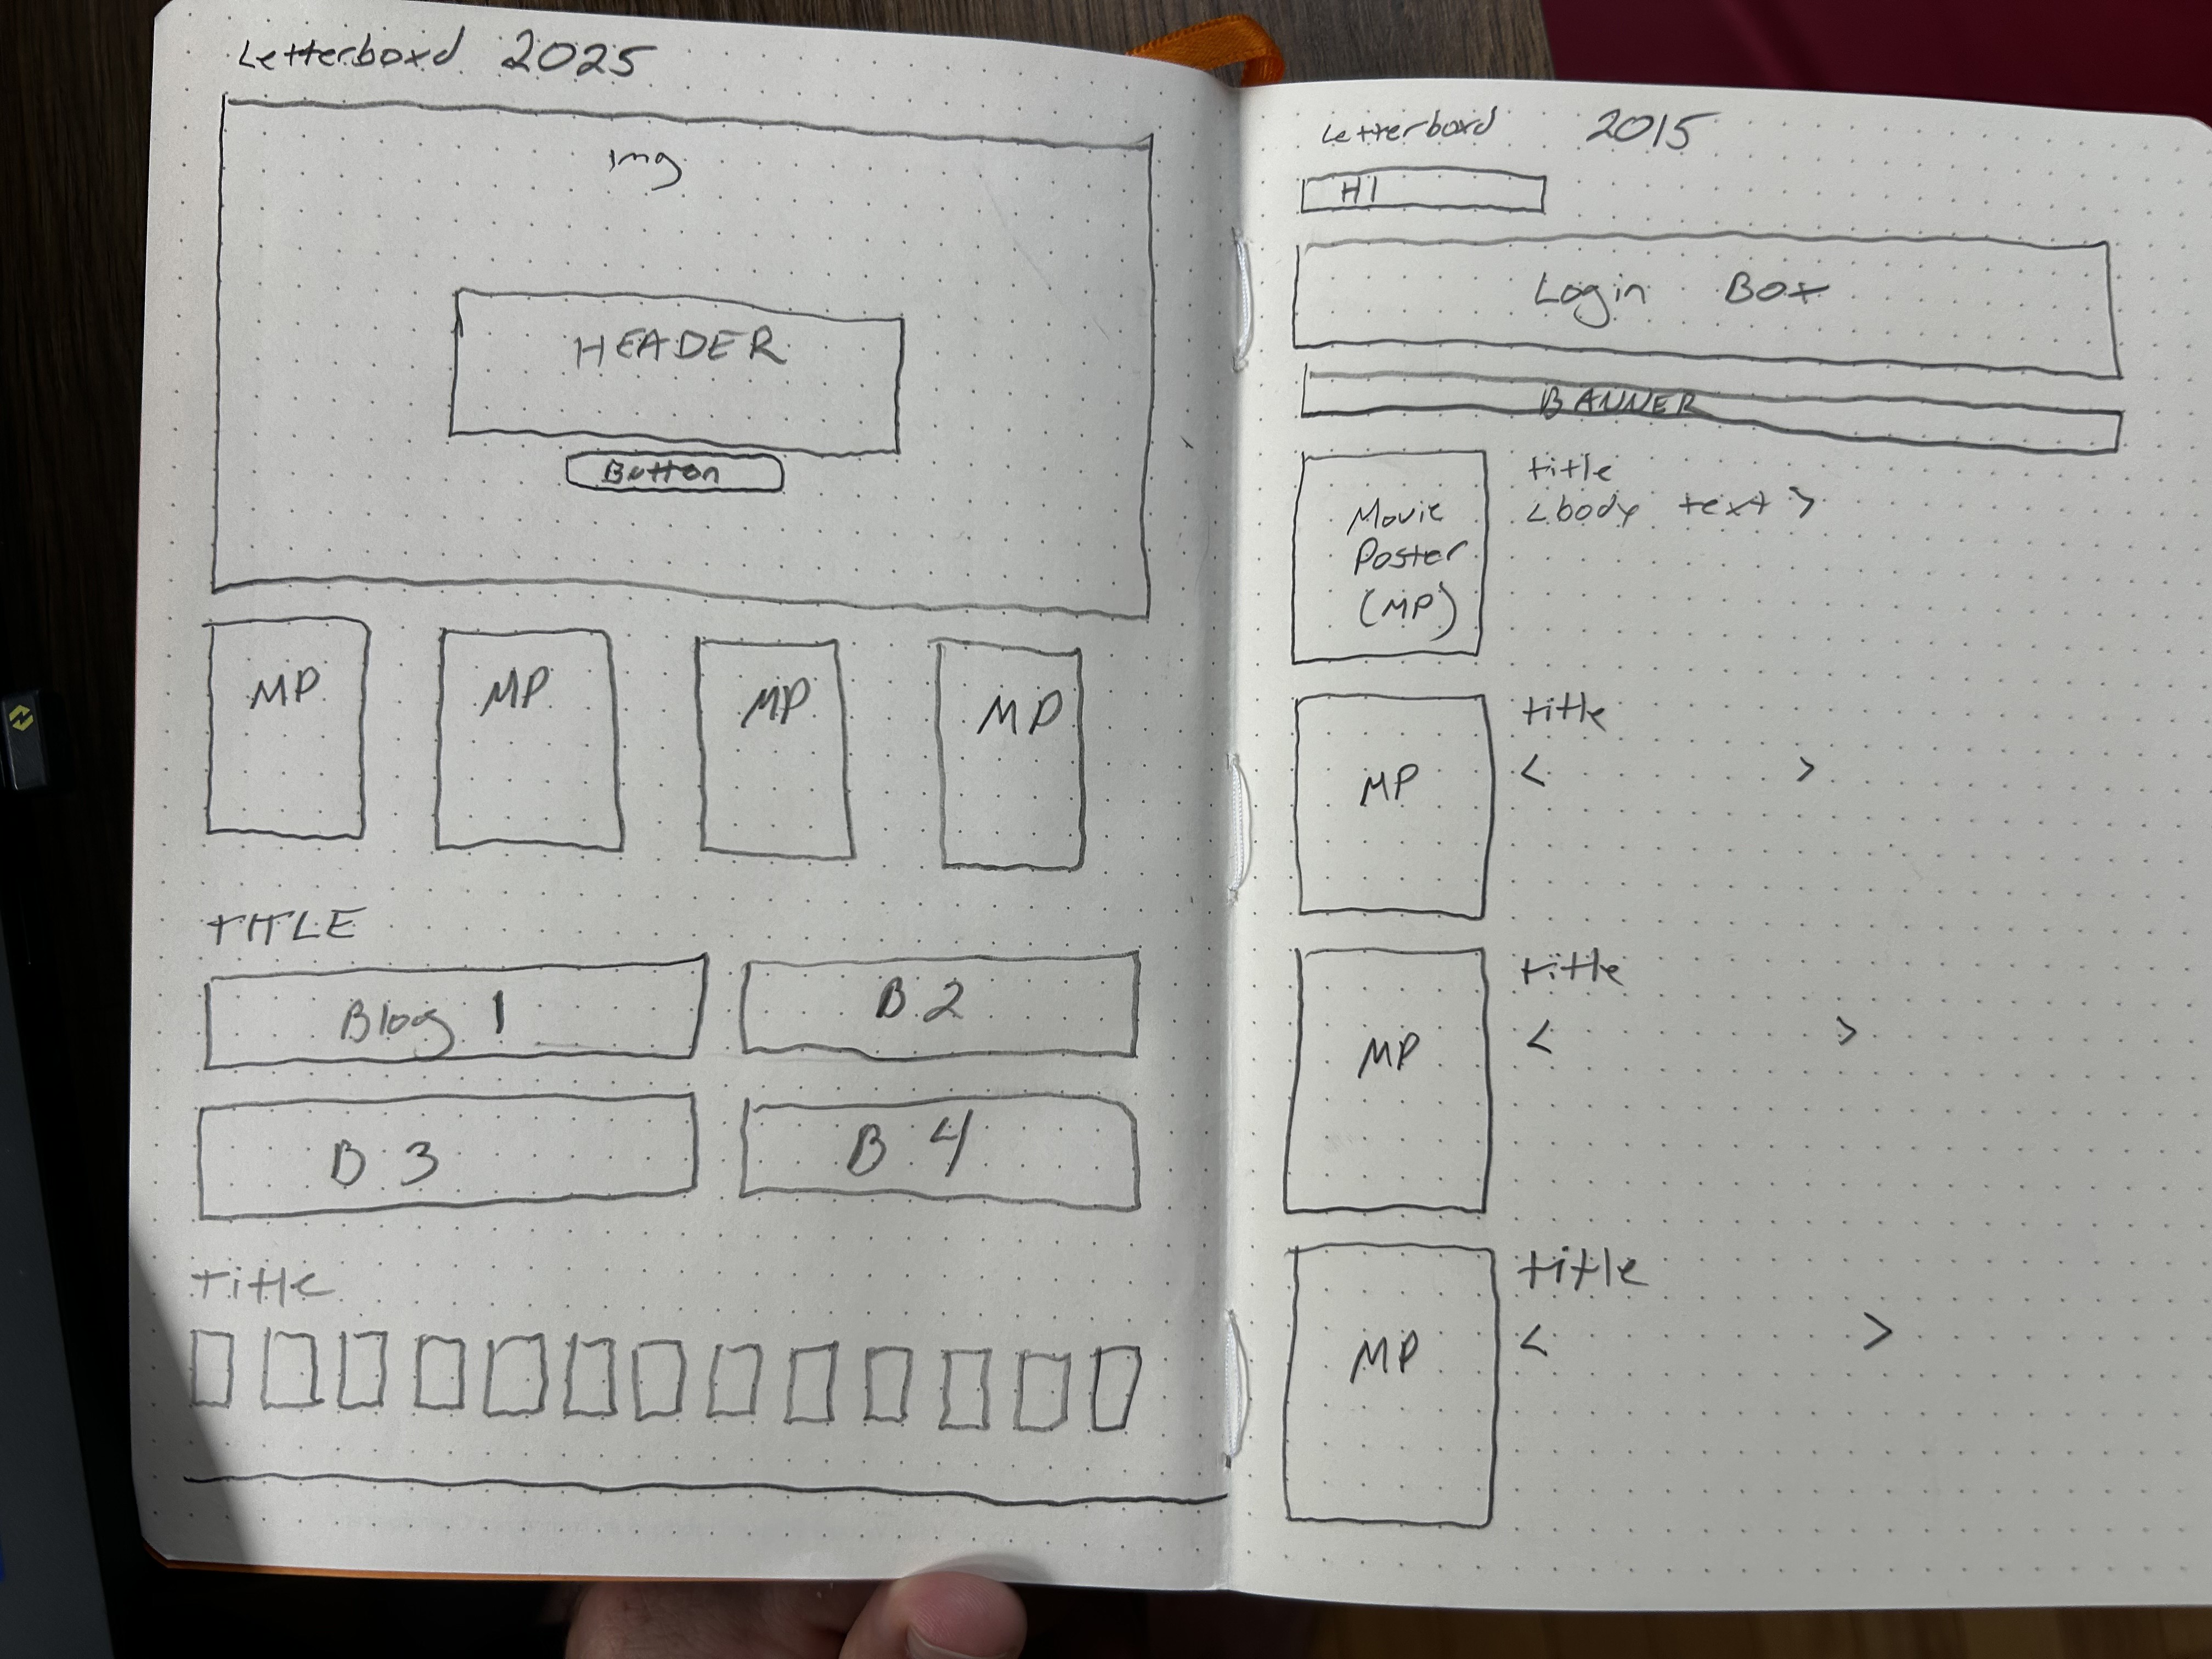 Letterboxd 2025
img
HEADER
Button
MP
MP
MP
MP
TITLE
Blog 1
B2
B3
B4
Title
Letterboxd 2015
H1
Login Box
BANNER
Movie
Poster
(MP)
title
<body text>
MP
title
< >
MP
title
< >
MP
title
< >